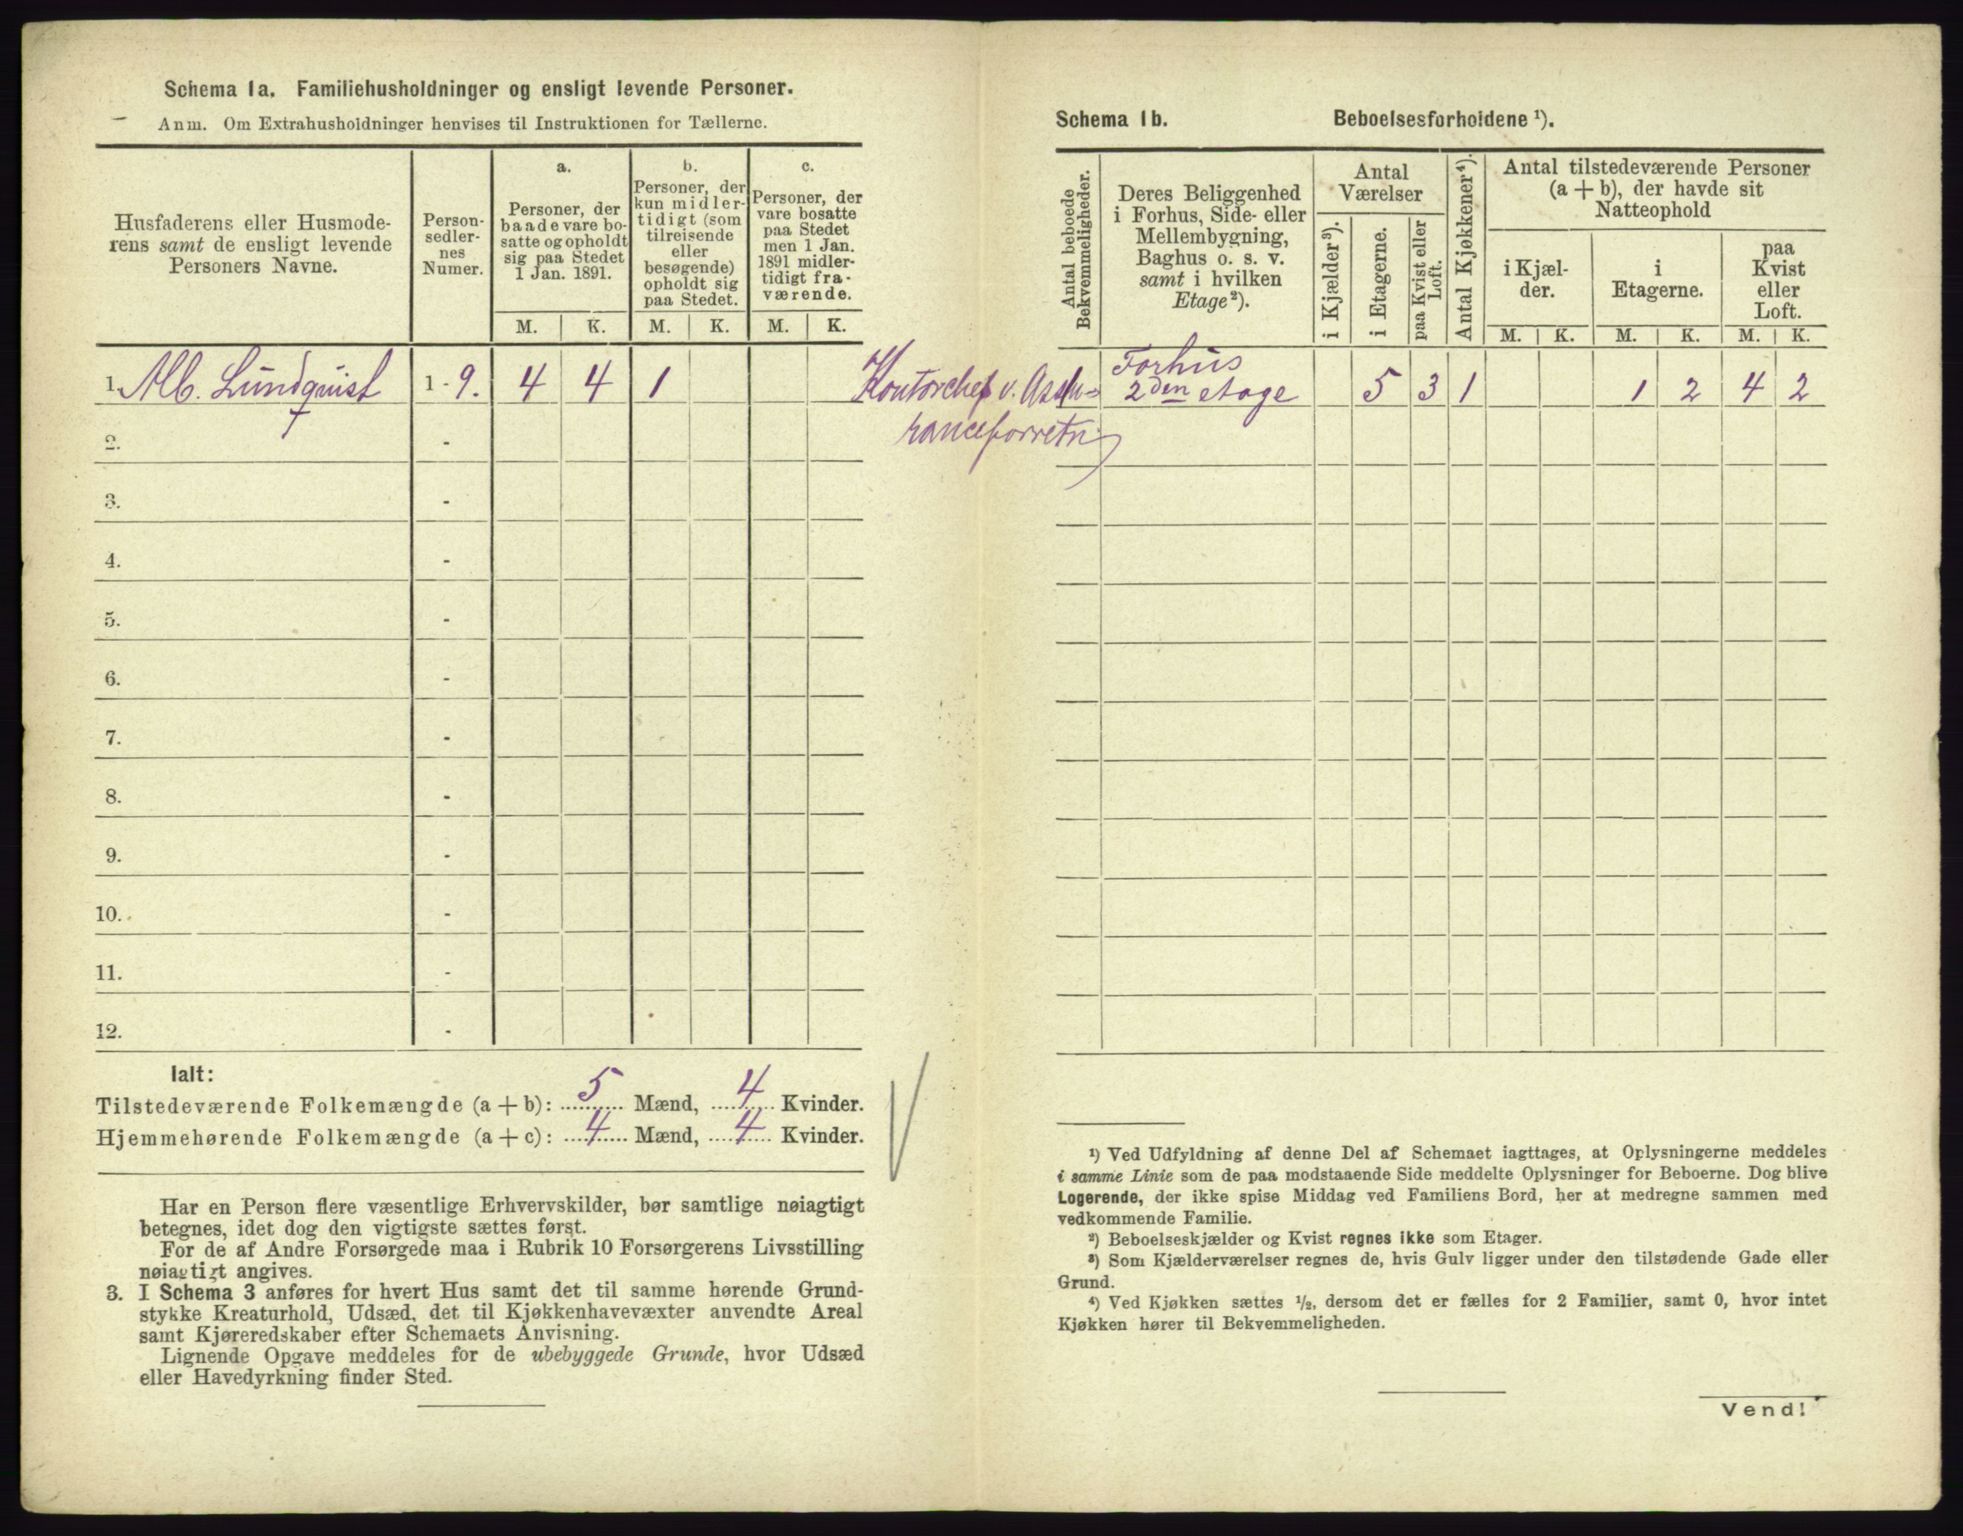 Schema 1a. Familiehusholdninger og ensligt levende Personer.
Anm. Om Extrahusholdninger henvises til Instruktionen for Tællerne.
Husfaderens eller Husmode-
rens samt de ensligt levende
Personers Navne.
Person-
sedler-
nes
Numer.
a.
Personer, der
baade vare bo-
satte og opholdt
sig paa Stedet
1 Jan. 1891.
b.
Personer, der
kun midler-
tidigt (som
tilreisende
eller
besøgende)
opholdt sig
paa Stedet.
c.
Personer, der
vare bosatte
paa Stedet
men 1 Jan.
1891 midler-
tidigt fra-
værende.
M. K. M. K. M. K.
1. Alb. Lundquist 1 - 9. 4 4 1
2. -
3. -
4. -
5. -
6. -
7. -
8. -
9. -
10. -
11. -
12. -
Ialt:
Tilstedeværende Folkemængde (a + b): 5 Mænd, 4 Kvinder.
Hjemmehørende Folkemængde (a + c): 4 Mænd, 4 Kvinder.
Har en Person flere væsentlige Erhvervskilder, bør samtlige nøiagtigt
betegnes, idet dog den vigtigste sættes først.
For de af Andre Forsørgede maa i Rubrik 10 Forsørgerens Livsstilling
nøiagtigt angives.
3. I Schema 3 anføres for hvert Hus samt det til samme hørende Grund-
stykke Kreaturhold, Udsæd, det til Kjøkkenhavevæxter anvendte Areal
samt Kjøreredskaber efter Schemaets Anvisning.
Lignende Opgave meddeles for de ubebyggede Grunde, hvor Udsæd
eller Havedyrkning finder Sted.
Schema 1b. Beboelsesforholdene ¹).
Antal beboede
Bekvemmeligheder.
Deres Beliggenhed
i Forhus, Side- eller
Mellembygning,
Baghus o. s. v.
samt i hvilken
Etage²).
Antal
Værelser
i Kjælder³).
i Etagerne.
paa Kvist eller
Loft.
Antal Kjøkkener⁴).
Antal tilstedeværende Personer
(a + b), der havde sit
Natteophold
i Kjæl-
der.
i
Etagerne.
paa
Kvist
eller
Loft.
M. K. M. K. M. K.
Kontorchef v. Assu-
ranceforretn
Forhus
2den etage 5 3 1 1 2 4 2
¹) Ved Udfyldning af denne Del af Schemaet iagttages, at Oplysningerne meddeles
i samme Linie som de paa modstaaende Side meddelte Oplysninger for Beboerne. Dog blive
Logerende, der ikke spise Middag ved Familiens Bord, her at medregne sammen med
vedkommende Familie.
²) Beboelseskjælder og Kvist regnes ikke som Etager.
³) Som Kjælderværelser regnes de, hvis Gulv ligger under den tilstødende Gade eller
Grund.
⁴) Ved Kjøkken sættes ½, dersom det er fælles for 2 Familier, samt 0, hvor intet
Kjøkken hører til Bekvemmeligheden.
Vend!